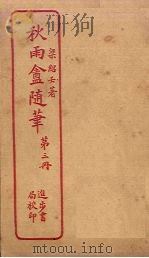 梁紹壬著
秋雨盦隨筆
第三冊
進步書
局校印
mtoou.info